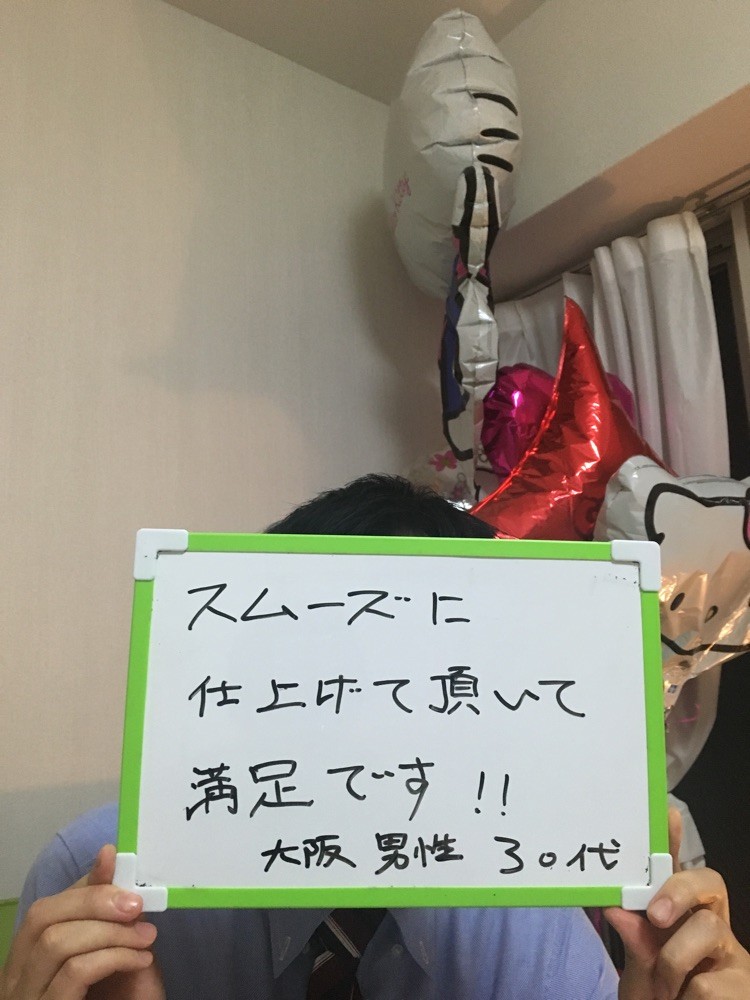 スムーズに
仕上げて頂いて
満足です!!
大阪 男性 30代